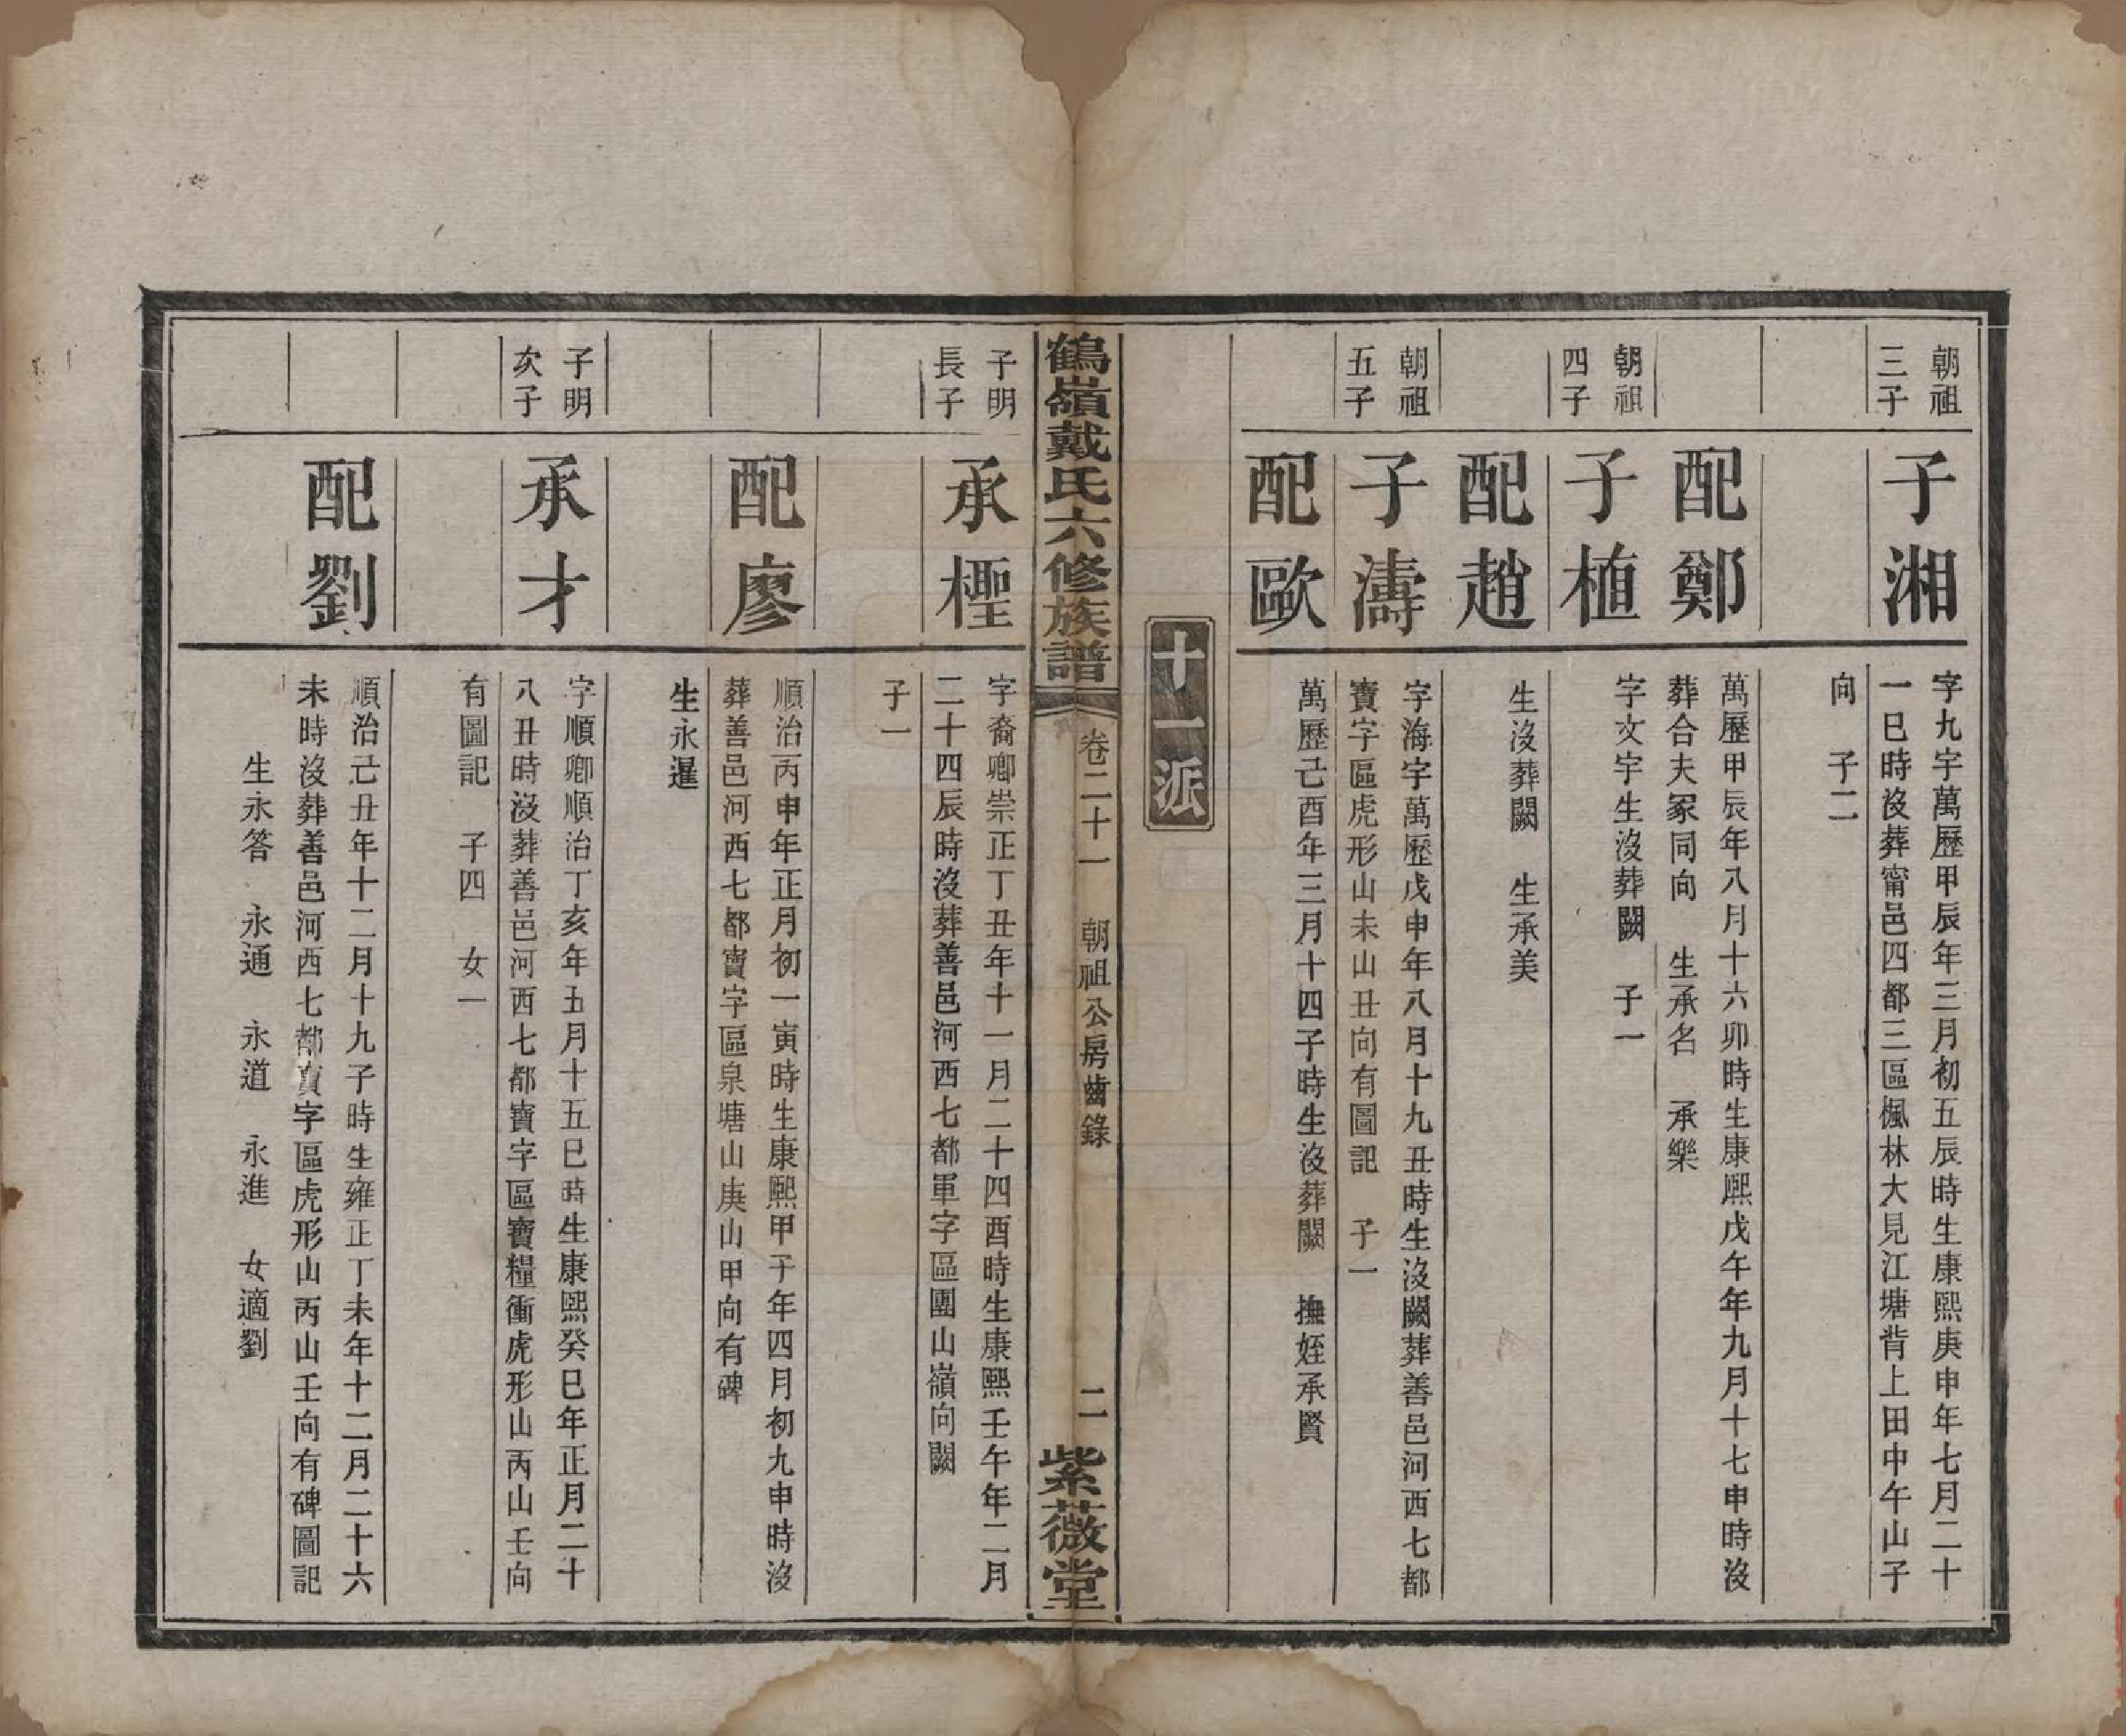 朝祖
三子
子湘
字九字萬歷甲辰年三月初五辰時生康熙庚申年七月二十
一巳時沒葬甯邑四都三區楓林大見江塘背上田中午山子
向　子二
配鄭
萬歷甲辰年八月十六卯時生康熙戊午年九月十七申時沒
葬合夫冢同向　生承名　承樂
朝祖
四子
子植
字文字生沒葬闕　子一
配趙
生沒葬闕　生承美
朝祖
五子
子濤
字海字萬歷戊申年八月十九丑時生沒闕葬善邑河西七都
寶字區虎形山未山丑向有圖記　子一
配歐
萬歷己酉年三月十四子時生沒葬闕　撫姪承賢
十一派
鶴嶺戴氏六修族譜
卷二十一　朝祖公房齒錄
二
紫薇堂
子明
長子
承檉
字裔卿崇正丁丑年十一月二十四酉時生康熙壬午年二月
二十四辰時沒葬善邑河西七都軍字區團山嶺向闕
子一
配廖
順治丙申年正月初一寅時生康熙甲子年四月初九申時沒
葬善邑河西七都寶字區泉塘山庚山甲向有碑
生永暹
子明
次子
承才
字順卿順治丁亥年五月十五巳時生康熙癸巳年正月二十
八丑時沒葬善邑河西七都寶字區寶糧衝虎形山丙山壬向
有圖記　子四　女一
配劉
順治己丑年十二月十九子時生雍正丁未年十二月二十六
未時沒葬善邑河西七都寶字區虎形山丙山壬向有碑圖記
生永答　永通　永道　永進　女適劉